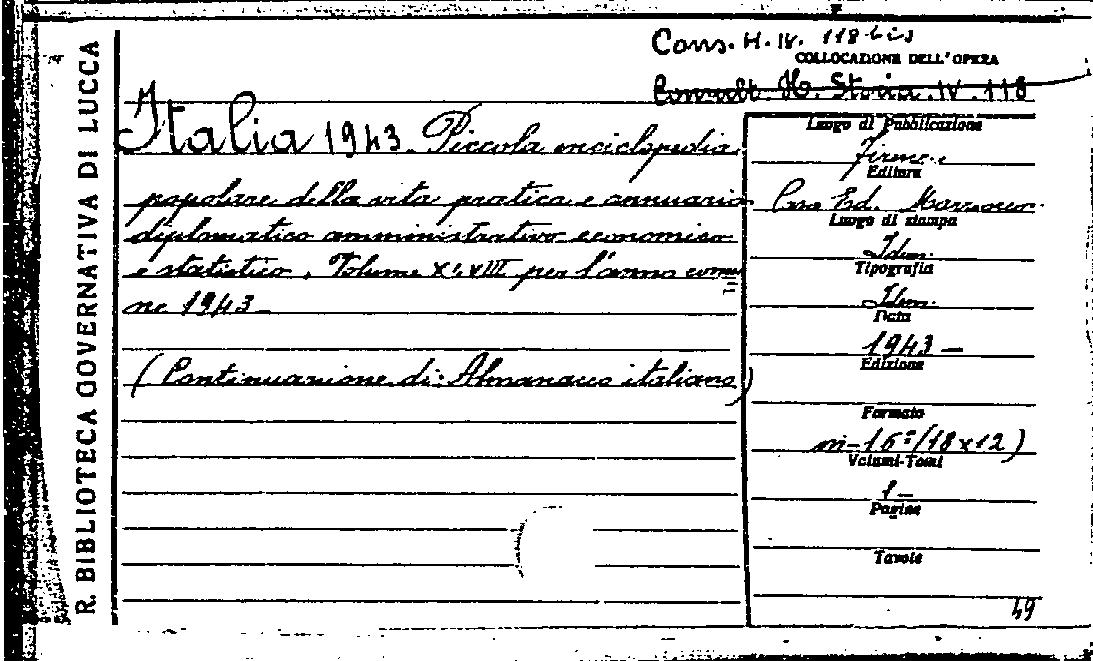 R. BIBLIOTECA GOVERNATIVA DI LUCCA
Cons. H. IV. 118 bis
COLLOCAZIONE DELL'OPERA
Consult. H. Storia. IV. 118
Italia 1943. Piccola enciclopedia
popolare della vita pratica e annuario
diplomatico amministrativo economico
e statistico. Volume XLVIII per l'anno comu
ne 1943_
(Continuazione di: Almanacco italiano)
Luogo di Pubblicazione
Firenze
Editore
Casa Ed. Marzocco.
Luogo di stampa
Idem.
Tipografia
Idem.
Data
1943 —
Edizione
Formato
in-16º (18x12)
Volumi-Tomi
1 —
Pagine
Tavole
49